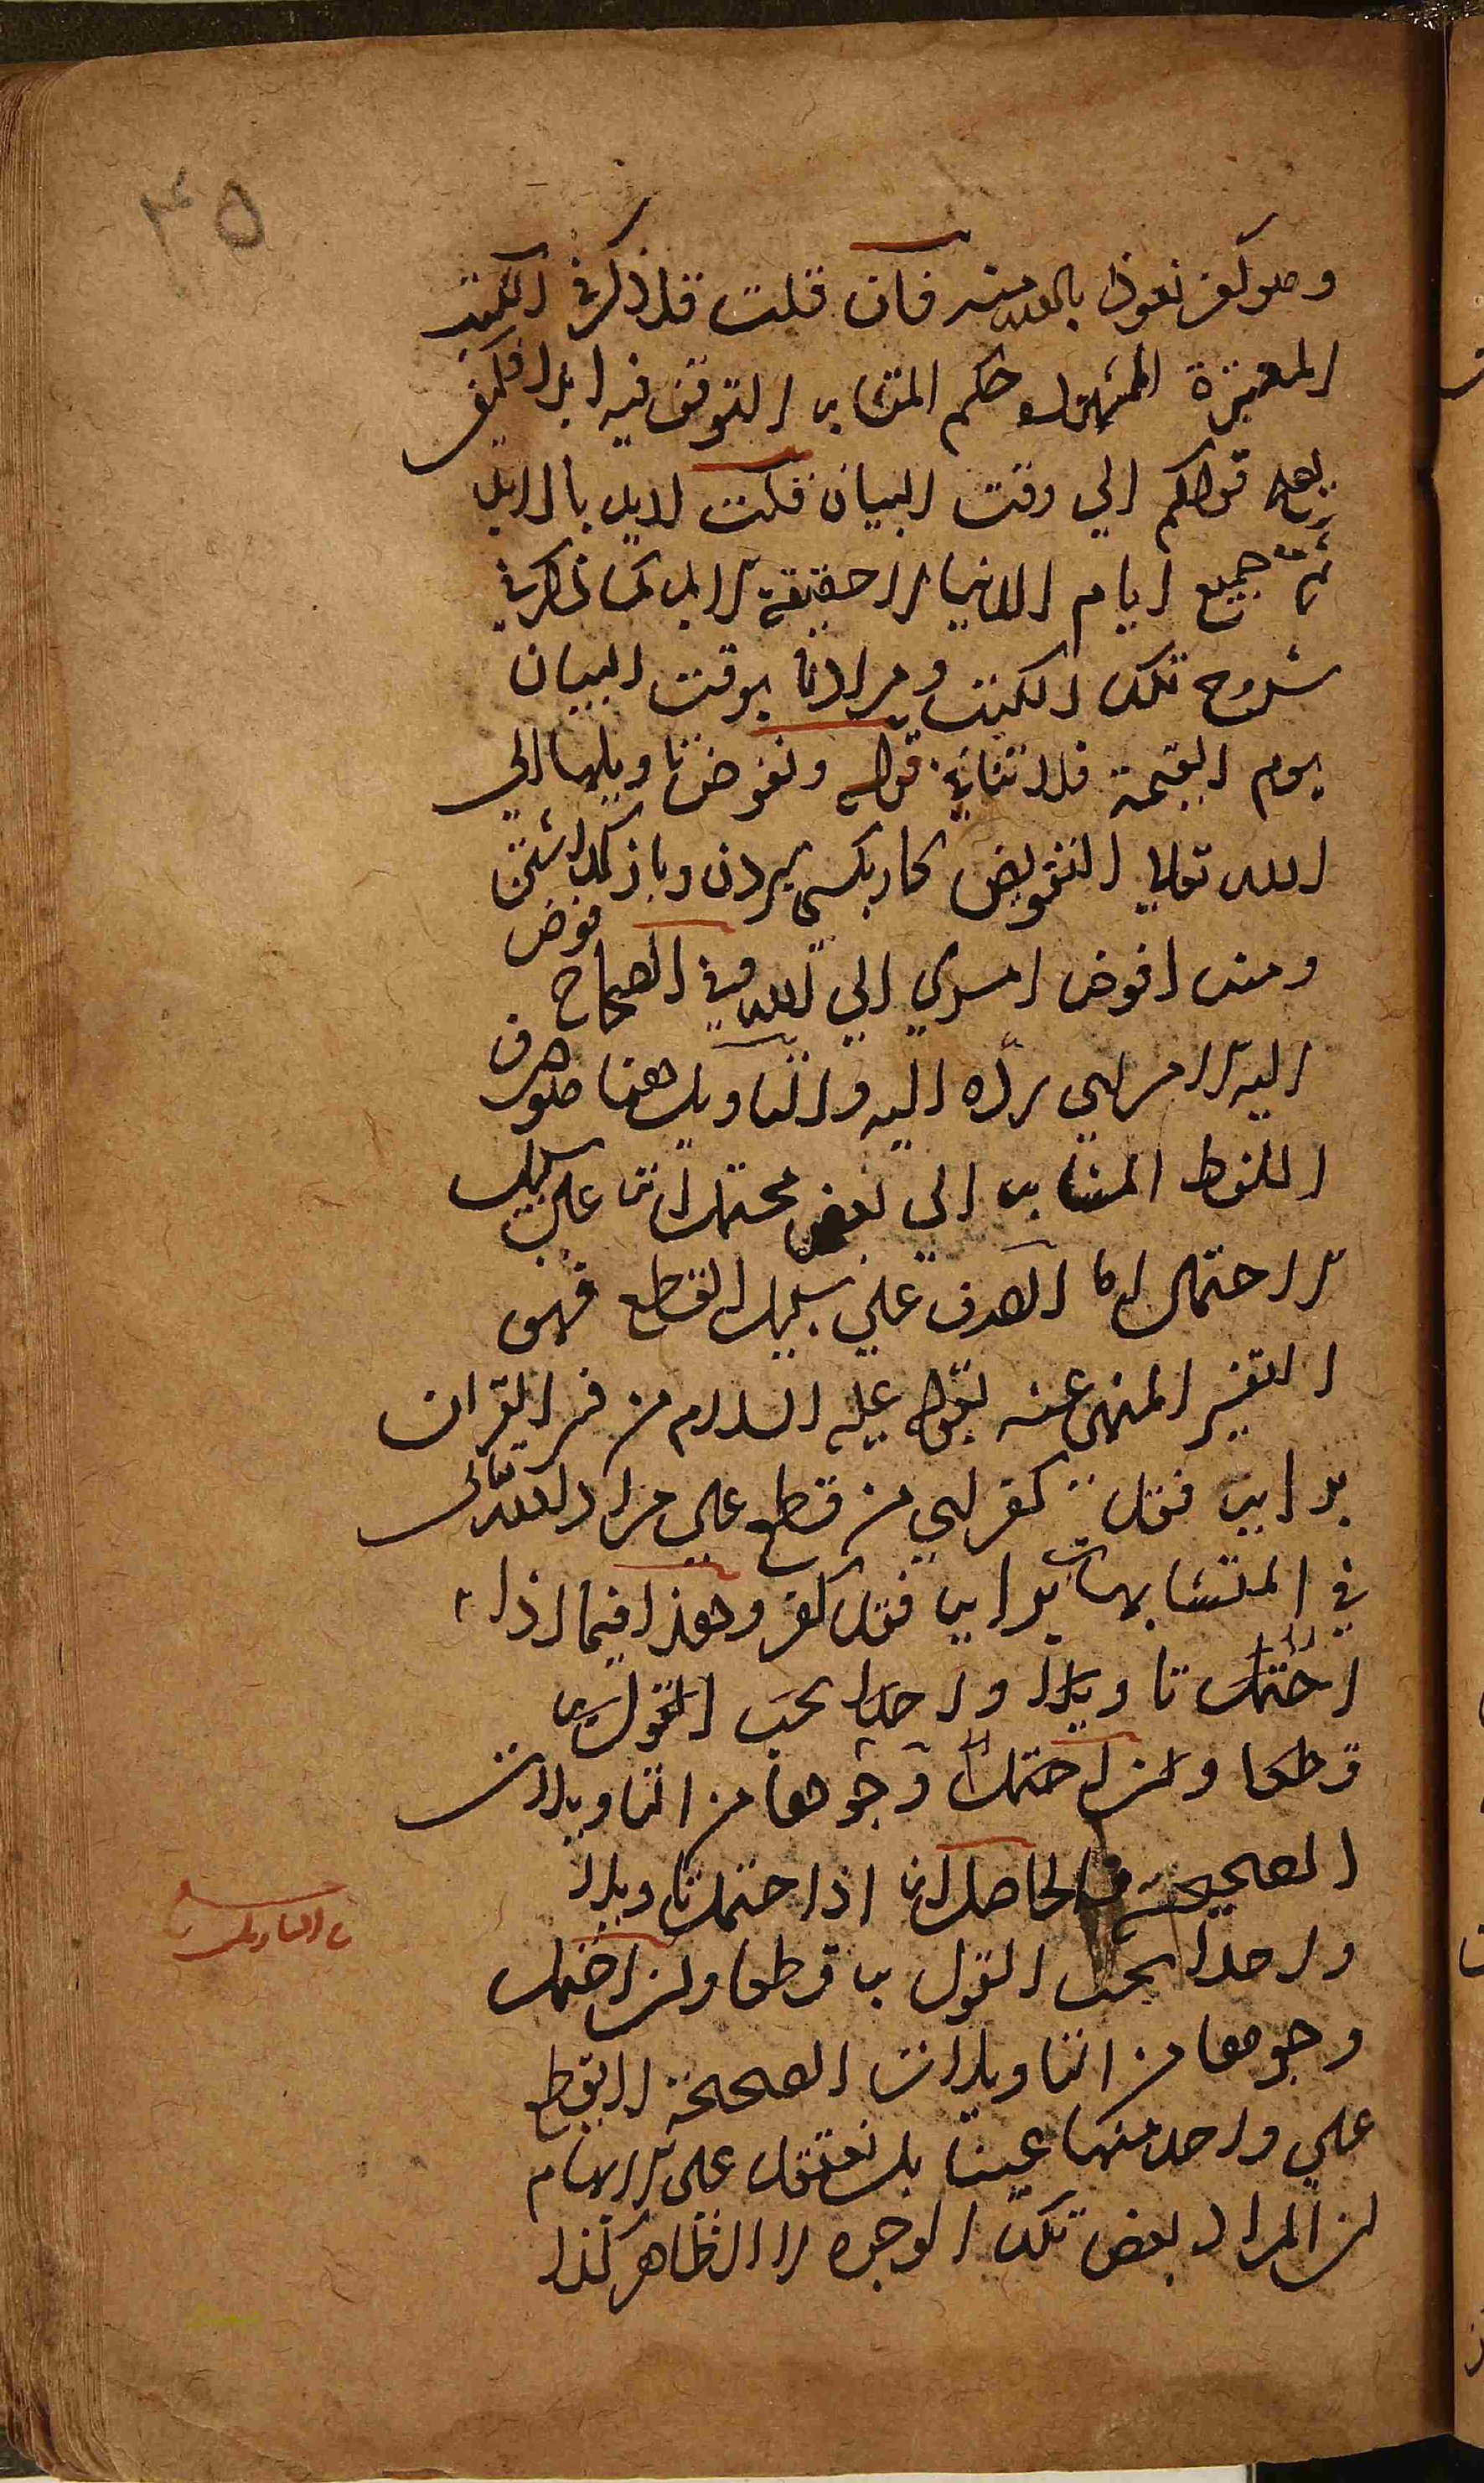 ۴۵
وهو كفر نعوذ بالله منه فان قلت قد ذكر في الكتب
المعتبرة المشهورة حكم المتشابه التوقف فيه ابدا فكيف
يصح قولكم الي وقت البيان قلت لابد بالابد
ثمة جميع ايام الدنيا لا حقيقة الابد كما ذكر في
شروح تلك الكتب ومرادنا بوقت البيان
يوم القيمة فلا تنافي قوله ونفوض تاويلها الي
الله تعالي التفويض كار بكسي سپردن وباز گذاشتن
ومنه افوض امري الي الله وفي الصحاح فوض
اليه الامر اي رده اليه والتاويل ههنا هو صرف
اللفظ المتشابه الي بعض محتملاته علي سبيل
الاحتمال اما الصرف علي سبيل القطع فهو
التفسير المنهي عنه بقوله عليه السلام من فسر القران
برايه فقد كفر اي من قطع علي مراد الله تعالي
في المتشابهات برايه فقد كفر وهذا فيما اذا
احتملت تاويلا واحدا يجب القول به
قطعا وان احتملت وجوها من التاويلات
الصحيحة فالحاصل انه اذا احتمل تاويلا
واحدا يجب القول به قطعا وان احتمل
وجوها من التاويلات الصحيحة لا يقطع
علي واحد منها عينا بل نعتقد علي الابهام
ان المراد بعض تلك الوجوه لا الظاهر كذا
التاويل